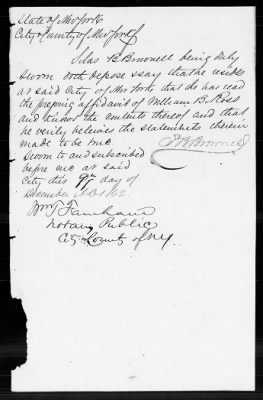 State of New York
City & County of New York
Silas B. Brownell being duly
sworn doth depose & say that he resides
at said City of New York that he has read
the foregoing affidavit of William B. Ross
and knows the contents thereof and that
he verily believes the statements therein
made to be true
Sworn to and subscribed
before me at said
City this 9th day of
December
Wm T Farnham
Notary Public
City & County of N.Y.